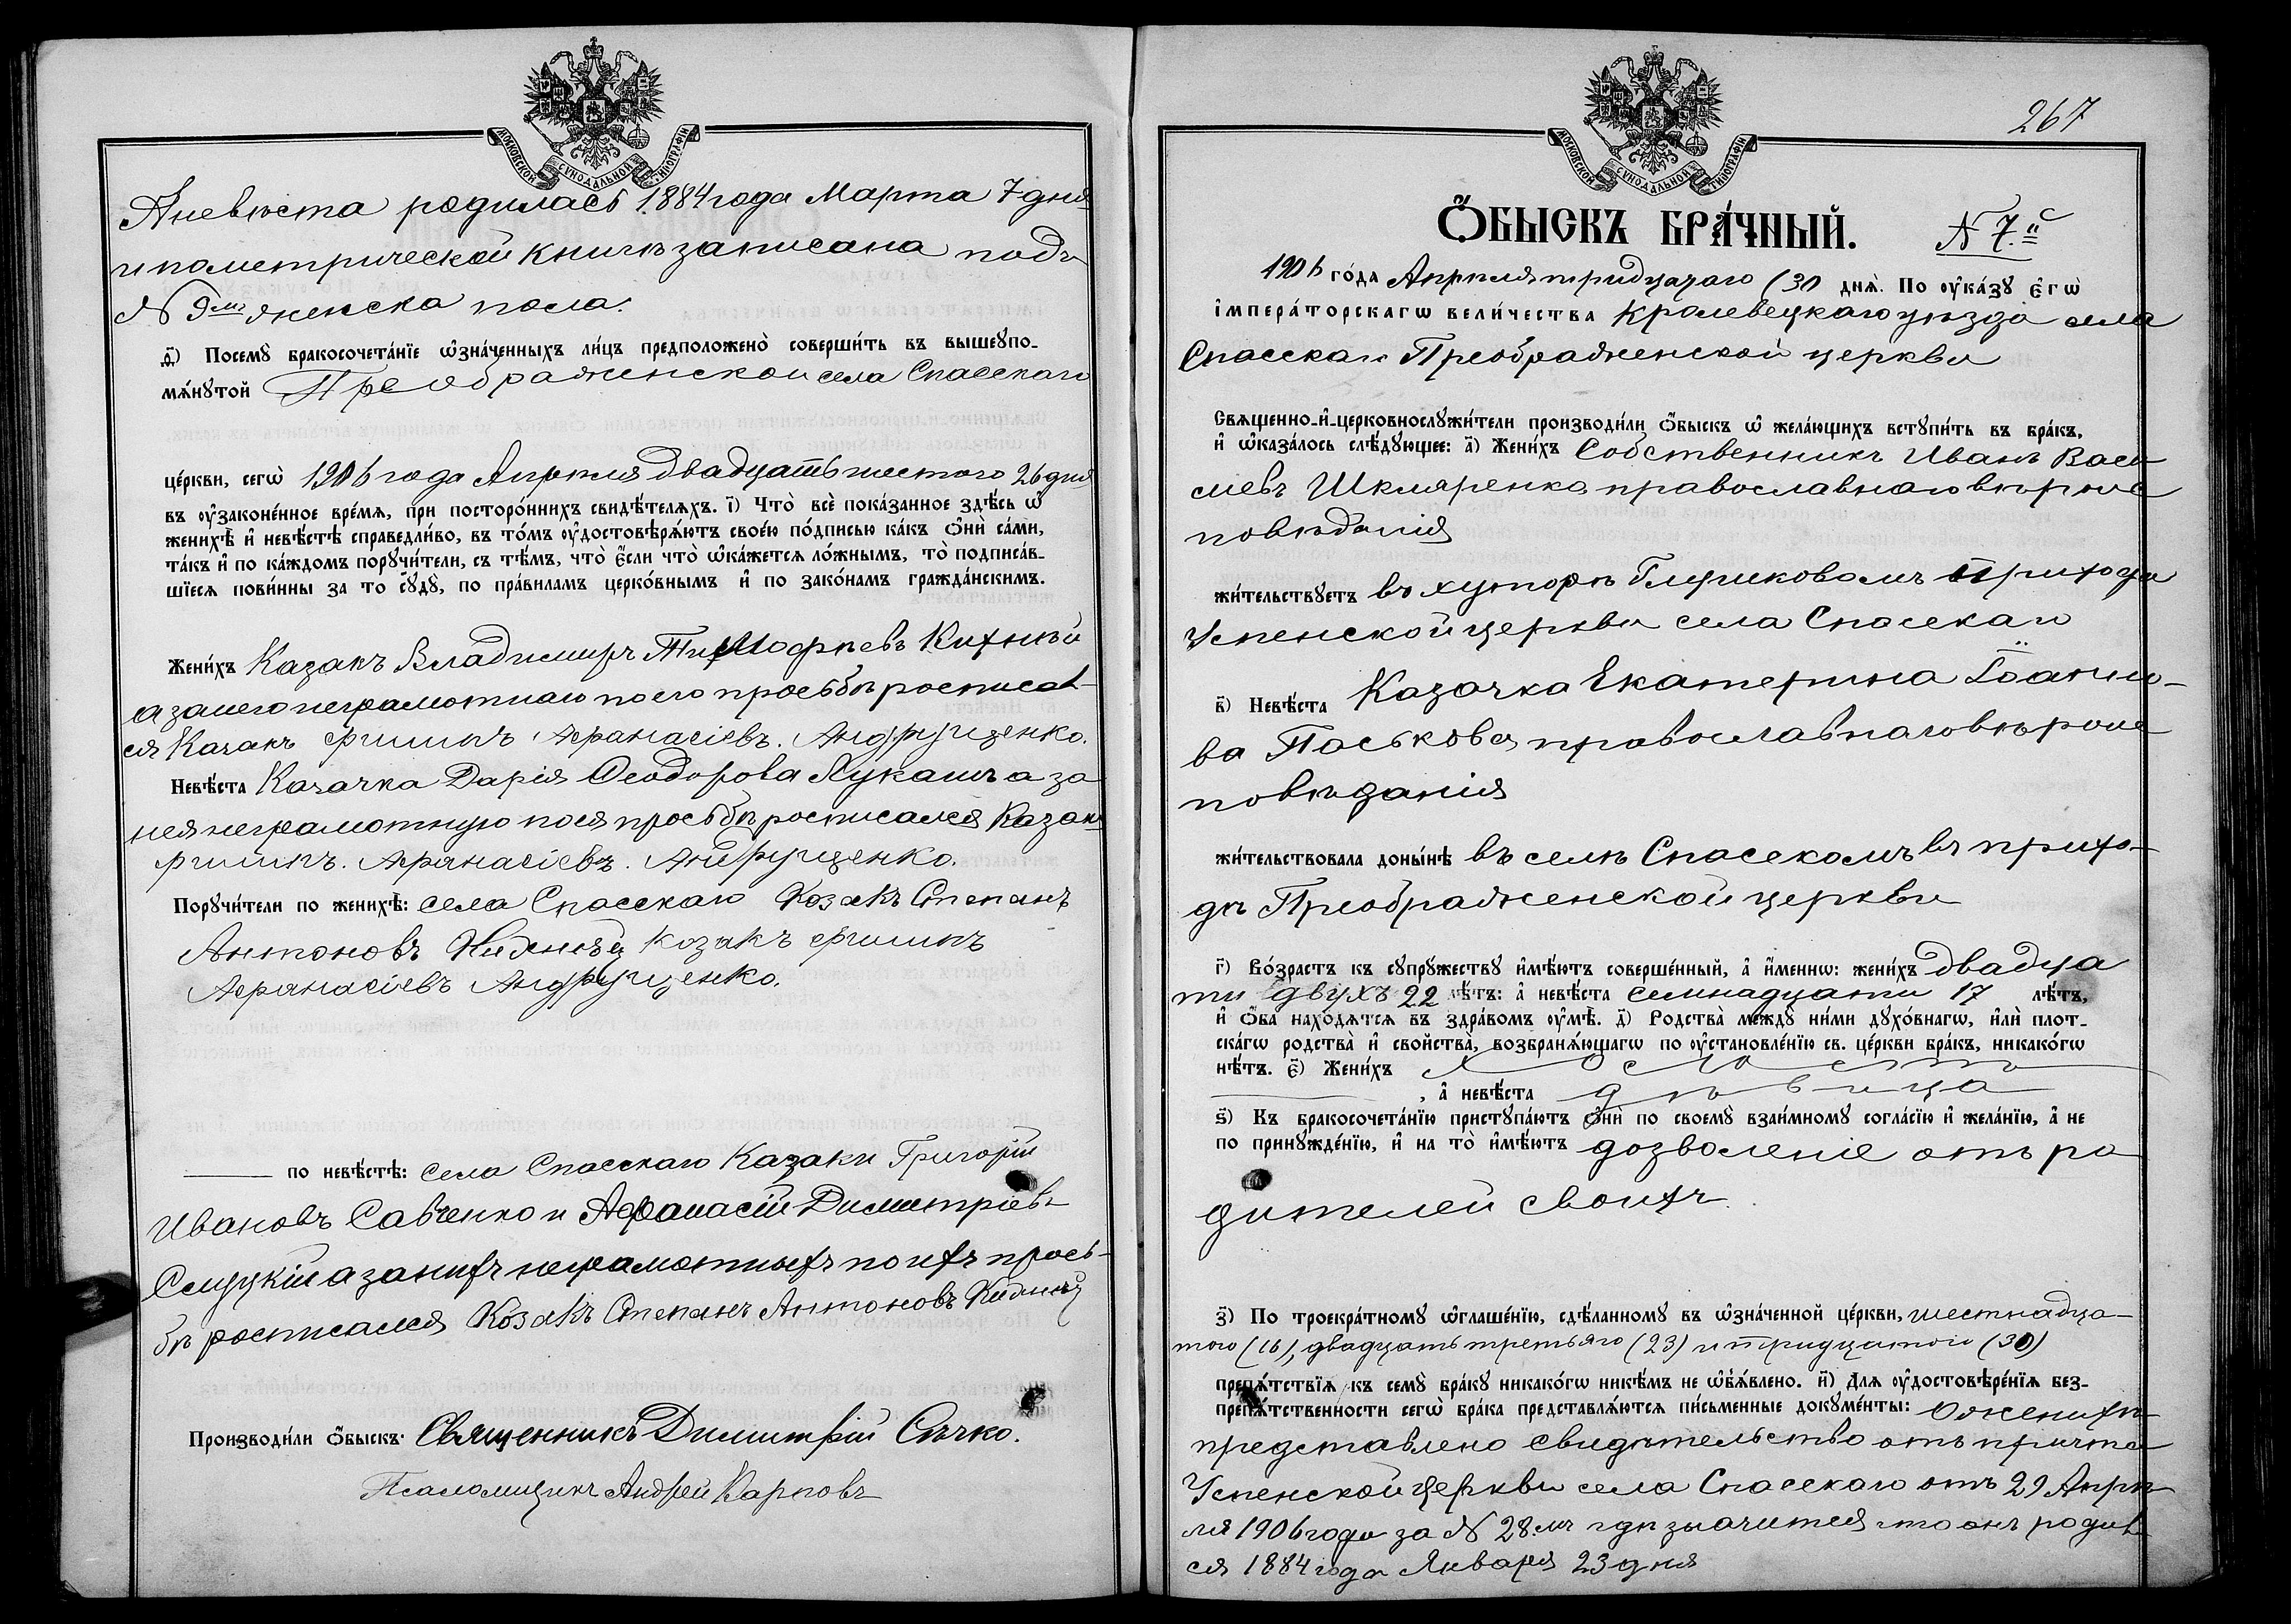 МОСКОВСКОЙ СУНОДАЛЬНОЙ ТИПОГРАФІИ
А невѣста родилась 1884 года Марта 7 дня
и по метрической книгѣ записана подъ
№ 9мъ женска пола.
д҃і) Посемꙋ бракосочета́нїе ѡ҆зна́ченныхъ ли́цъ предположено̀ соверши́ть въ вышеꙋпо-
мѧ́нꙋтой Преображенской села Спасскаго
це́ркви, сегѡ̀ 1906 года Апрѣля двадцать шестого 26 дня
въ ᲂу҆законе́нное вре́мѧ, при посторо́ннихъ свидѣ́телѧхъ. і҃) Что̀ всѐ пока́занное здѣ́сь ѡ҆
женихѣ̀ и҆ невѣ́стѣ справедли́во, въ то́мъ ᲂу҆достовѣрѧ́ютъ свое́ю по́дписью ка́къ ѻ҆нѝ са́ми,
та́къ и҆ по ка́ждомъ порꙋчи́тели, съ тѣ́мъ, что̀ є҆́сли что̀ ѡ҆ка́жетсѧ ло́жнымъ, то̀ подписа́в-
шїесѧ пови́нны за то сꙋдꙋ̀, по пра́виламъ церко́внымъ и҆ по зако́намъ гражда́нскимъ.
Жени́хъ Казакъ Владимиръ Тимофѣевъ Кихтѣй
а за него неграмотнаго по его просьбѣ росписал-
ся Казакъ Филипъ Афанасіевъ. Андрущенко.
Невѣ́ста Казачка Дарія Ѳеодорова Лукашъ а за
нея неграмотную по ея просьбѣ росписался Казакъ
Филипъ. Афанасіевъ. Андрущенко.
Порꙋчи́тели по женихѣ̀: села Спасскаго Козакъ Степанъ
Антоновъ козакъ Филипъ
Афанасіевъ Андрущенко.
по невѣ́стѣ: села Спасскаго Казаки Григорій
Ивановъ Савченко и Афанасій Димитріевъ
Слуцкій а за нихъ неграмотныхъ по ихъ прось-
бѣ росписался Козакъ Степанъ Антоновъ
Производи́ли ѻ҆́быскъ: Священникъ Димитрій Сѣчко.
Псаломщикъ Андрей Карповъ
267
МОСКОВСКОЙ СУНОДАЛЬНОЙ ТИПОГРАФІИ
Ѻ҆́БЫСКЪ БРА́ЧНЫЙ. № 7.й
1906 го́да Апрѣля тридцатаго (30 днѧ̀. По ᲂу҆ка́зꙋ є҆гѡ̀
і҆мпера́торскагѡ вели́чества Кролевецкаго уѣзда села
Спасскаго Преображенской церкви
Свѧщенно-и҆-церковнослꙋжи́тели производи́ли ѻ҆́быскъ ѡ҆ жела́ющихъ встꙋпи́ть въ бра́къ,
и҆ ѡ҆каза́лось слѣ́дꙋющее: а҃) Жени́хъ Собственникъ Иванъ Васи
лиевъ Шкляренко православнаго вѣроис
повѣданія
жи́тельствꙋетъ въ хуторѣ Глушковомъ Прихода
Успенской церкви села Спасскаго
в҃) Невѣ́ста Казачка Екатерина Іоанно-
ва Паськова православнаго вѣроис
повѣданія
жи́тельствовала доны́нѣ въ селѣ Спасскомъ въ прихо-
дѣ Преображенской церкви
г҃) Во́зрастъ къ сꙋпрꙋжествꙋ и҆мѣ́ютъ соверше́нный, а҆ и҆́менно: жени́хъ двадца
ти двухъ 22 лѣ́тъ: а҆ невѣ́ста семнадцати 17 лѣ́тъ,
и҆ ѻ҆́ба нахо́дѧтсѧ въ здра́вомъ ᲂу҆мѣ̀. д҃) Родства̀ междꙋ̀ ни́ми дꙋхо́внагѡ, и҆лѝ плот-
ска́гѡ родства̀ и҆ свойства̀, возбранѧ́ющагѡ по ᲂу҆становле́нїю св. це́ркви бра́къ, никако́гѡ
нѣ́тъ. є҃) Жени́хъ холостъ
, а҆ невѣ́ста дѣвица
ѕ҃) Къ бракосочета́нїю пристꙋпа́ютъ ѻ҆нѝ по своемꙋ̀ взаи́мномꙋ согла́сїю и҆ жела́нїю, а҆ не
по принꙋжде́нїю, и҆ на то̀ и҆мѣ́ютъ дозволеніе отъ ро
дителей своихъ.
з҃) По троекра́тномꙋ ѡ҆глаше́нїю, сдѣ́ланномꙋ въ ѡ҆зна́ченной це́ркви, шестнадца-
того (16), двадцать третьяго (23) и тридцатого (30)
препѧ́тствїѧ къ семꙋ̀ бра́кꙋ никако́гѡ никѣ́мъ не ѡ҆б̾ѧ́влено. и҃) Длѧ ᲂу҆достовѣре́нїѧ без-
препѧ́тственности сегѡ̀ бра́ка представлѧ́ютсѧ пи́сьменные докꙋме́нты: О женихѣ
представлено свидѣтельство отъ причта
Успенской церкви села Спасскаго отъ 29 Апрѣ
ля 1906 года за № 28.мъ гдѣ значится что онъ родил
ся 1884 года Января 23 дня